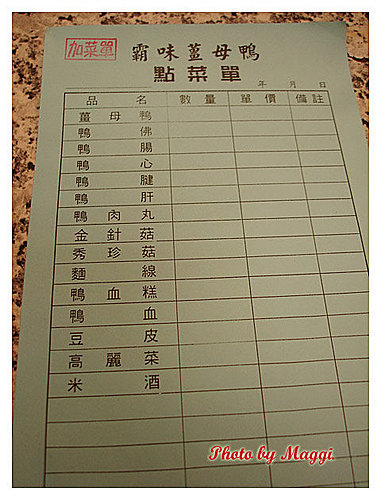 加菜單
霸味薑母鴨
點菜單
年 月 日
品名 數量 單價 備註
薑母鴨
鴨佛
鴨腸
鴨心
鴨腱
鴨肝
鴨肉丸
金針菇
秀珍菇
麵線
鴨血糕
鴨血
豆皮
高麗菜
米酒
Photo by Maggi